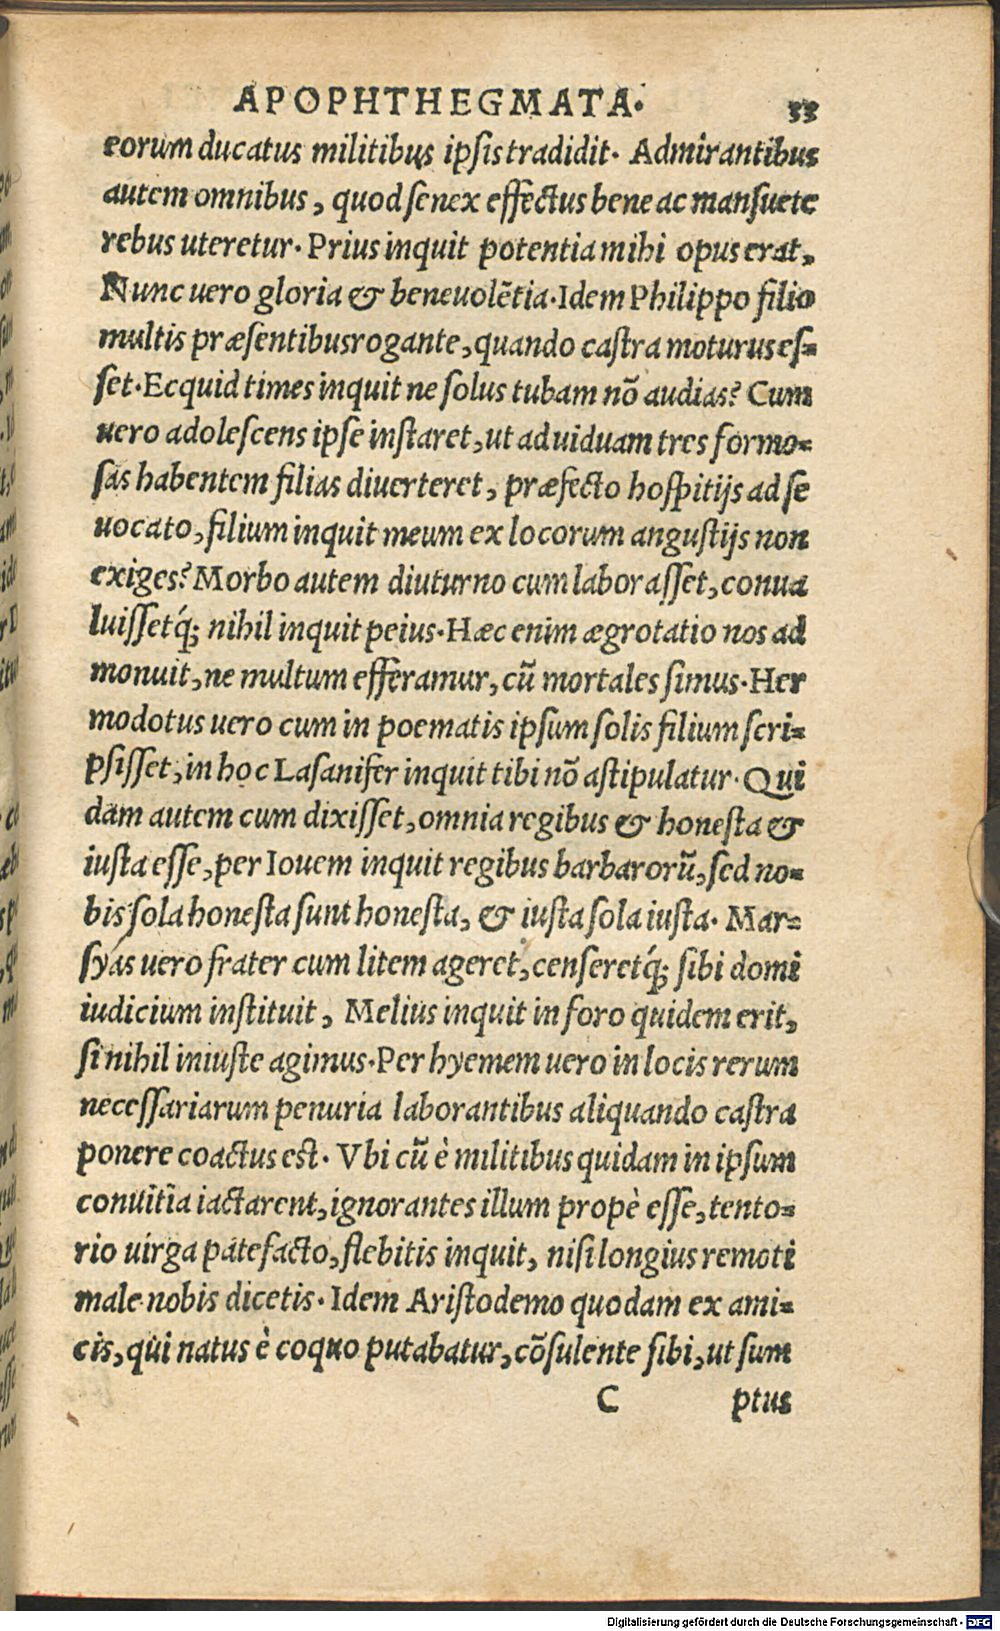 APOPHTHEGMATA. 33
eorum ducatus militibus ipsis tradidit. Admirantibus
autem omnibus, quod senex effectus bene ac mansuete
rebus uteretur. Prius inquit potentia mihi opus erat,
Nunc uero gloria & beneuolẽtia. Idem Philippo filio
multis præsentibus rogante, quando castra moturus es-
set. Ecquid times inquit ne solus tubam nõ audias? Cum
uero adolescens ipse instaret, ut ad uiduam tres formo-
sas habentem filias diuerteret, præfecto hospitijs ad se
uocato, filium inquit meum ex locorum angustijs non
exiges? Morbo autem diuturno cum laborasset, conua
luissetq́; nihil inquit peius. Hæc enim ægrotatio nos ad
monuit, ne multum efferamur, cũ mortales simus. Her
modotus uero cum in poematis ipsum solis filium scri-
psisset, in hoc Lasanifer inquit tibi nõ astipulatur. Qui
dam autem cum dixisset, omnia regibus & honesta &
iusta esse, per Iouem inquit regibus barbarorũ, sed no-
bis sola honesta sunt honesta, & iusta sola iusta. Mar-
syas uero frater cum litem ageret, censeretq́; sibi domi
iudicium instituit, Melius inquit in foro quidem erit,
si nihil iniuste agimus. Per hyemem uero in locis rerum
necessariarum penuria laborantibus aliquando castra
ponere coactus est. Vbi cũ è militibus quidam in ipsum
conuitia iactarent, ignorantes illum propè esse, tento-
rio uirga patefacto, flebitis inquit, nisi longius remoti
male nobis dicetis. Idem Aristodemo quodam ex ami-
cis, qui natus è coquo putabatur, cõsulente sibi, ut sum
C ptus
Digitalisierung gefördert durch die Deutsche Forschungsgemeinschaft - DFG